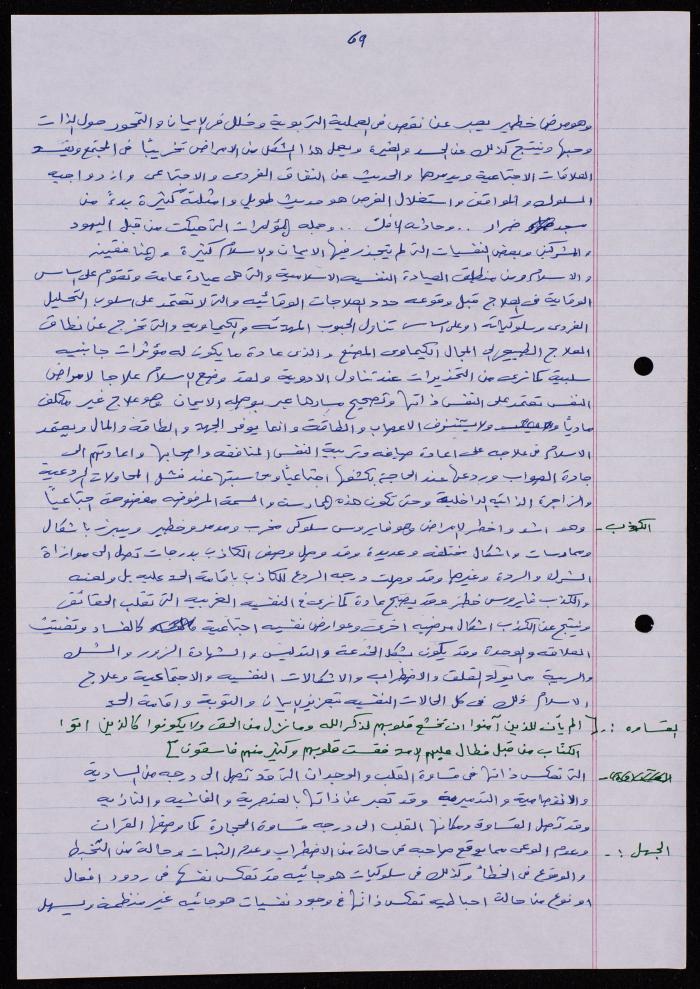 69
وهو مرض خطير يعبر عن نقص في العملية التربوية وخلل في الايمان والتمحور حول الذات
وحبها وينتج كذلك عن الحسد والغيرة ويعمل هذا الشكل من الامراض تخريبيًا في المجتمع ويفسد
العلاقات الاجتماعية ويدمرها والحديث عن النفاق الفردي والاجتماعي وازدواجية
السلوك والمواقف واستغلال الفرص هو حديث طويل وامثلته كثيرة بدءً من
مسجد ضرار .. وحادثة الافك .. وجملة المؤامرات التي حيكت من قبل اليهود
والمشركين وبعض النفسيات التي لم يتجذر فيها الايمان والاسلام كثيرة
والاسلام ومن منطلق العيادة النفسية الاسلامية والتي هي عيادة عامة وتقوم على اساس
الوقاية في العلاج قبل وقوعه حدد العلاجات الوقائية والتي لا تعتمد على اسلوب التحليل
الفردي وسلوكياته او على اساس تناول الحبوب المهدئة والكيماوية والتي تخرج عن نطاق
العلاج الطبيعي الى المجال الكيماوي المصنع والذي عادة ما يكون له مؤثرات جانبية
سلبية كما نرى من التحذيرات عند تناول الادوية ولقد وضع الاسلام علاجا لامراض
النفس تعتمد على النفس ذاتها وتصحيح مسارها عبر بوصلة الايمان وهو علاج غير مكلف
ماديًا ولا يستنزف الاعصاب والطاقة وانما يوفر الجهد والطاقة والمال ويعتمد
الاسلام في علاجه على اعادة صياغة وتربية النفس المنافقة واصحابها واعادتهم الى
جادة الصواب وردعها عند الحاجة بكشفها اجتماعيًا ومحاسبتها عند فشل المحاولات الردعية
والزاجرة الذاتية الداخلية وحتى تكون هذه الممارسة والسمة المرفوضة مفضوحة اجتماعيًا
الكذب - وهو اشد واخطر الامراض وهو فايروس سلوكي مخرب ومدمر وخطير ويبرز باشكال
وممارسات واشكال مختلفة وعديدة وقد وصل وصف الكاذب بدرجات تصل الى موازاة
الشرك والردة وغيرها وقد وصلت درجة الردع للكاذب باقامة الحد عليه بل ولعنه
والكذب فايروس خطر وقد يصبح عادة كما نرى في النفسية الغربية التي تقلب الحقائق
وينتج عن الكذب اشكال مرضية اخرى وعوارض نفسية اجتماعية كالفساد وتفتيت
العلاقة والوحدة وقد يكون بشكل الخدعة والتدليس والشهادة الزور والشك
والريبة مما يولد القلق والاضطراب والاشكالات النفسية والاجتماعية وعلاج
الاسلام ذلك في كل الحالات النفسية تعزيز الايمان والتوبة واقامة الحد
القساوة : [ الم يأن للذين آمنوا ان تخشع قلوبهم لذكر الله وما نزل من الحق ولا يكونوا كالذين اتوا
الكتاب من قبل فطال عليهم الامد فقست قلوبهم وكثير منهم فاسقون ]
التي تعكس ذاتها في قساوة القلب والوجدان التي قد تصل الى درجة من السادية
والانفصامية والتدميرية وقد تعبر عن ذاتها بالعنصرية والفاشية والنازية
وقد تصل القساوة ومكانها القلب الى درجة قساوة الحجارة كما وصفها القران
الجهل : - وعدم الوعي مما يوقع صاحبه في حالة من الاضطراب وعدم الثبات وحالة من التخبط
والوقوع في الخطأ وكذلك في سلوكيات هوجائية قد تعكس نفسها في ردود افعال
او نوع من حالة احباطية تعكس ذاتها في وجود نفسيات هوجائية غير منظمة ويسهل